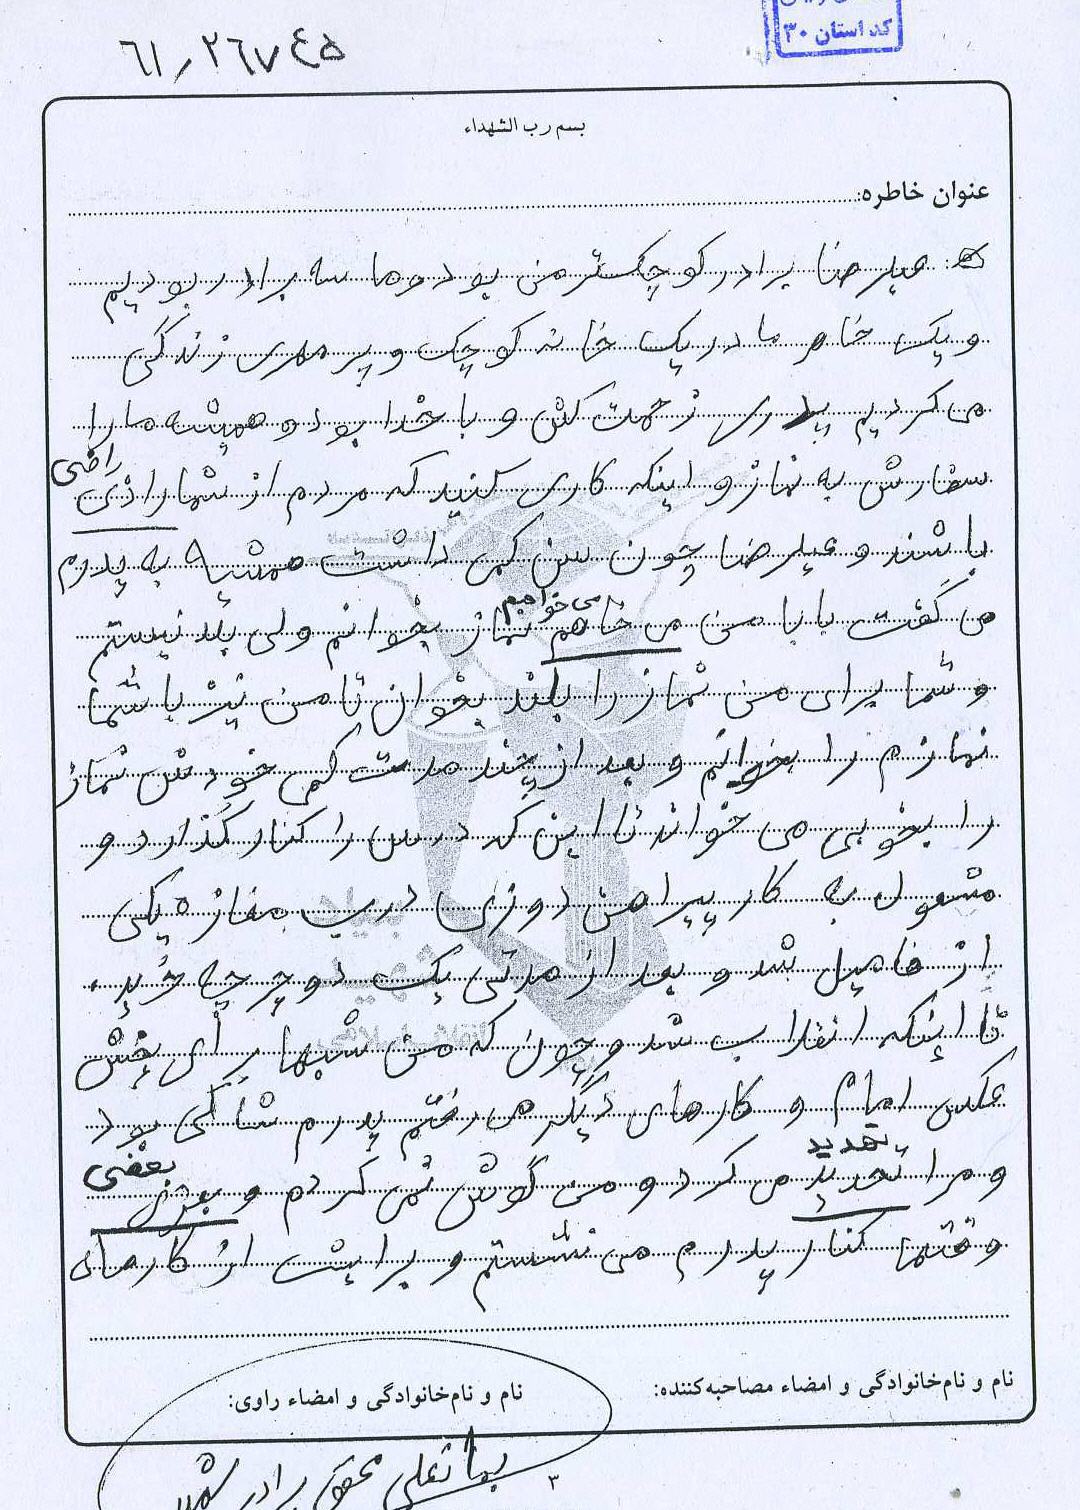 کد استان ۳۰
۶۱/۲۶۷۴۵
بسم رب الشهداء
عنوان خاطره:
علیرضا برادر کوچکتر من بود و ما سه برادر بودیم
و یک خاهر ما در یک خانه کوچک و پر مهری زندگی
می کردیم پدری زحمت کش و با خدا بود و همیشه ما را
راضی
سفارش به نماز و اینکه کاری کنید که مردم از شما راذی
باشند و علیرضا چون سن کمی داشت همشیه به پدرم
می خواهم
می گفت بابا من می خاهم نماز بخوانم ولی بلد نیستم
و شما برای من نماز را بلند بخوان تا من نیز با شما
نمازم را بخوانم و بعد از چند مدت کمی خودش نماز
را بخوبی می خواند تا این که درس را کنار گذارد و
مشعول به کار پیراهن دوزی درب مغازه یکی
از فامیل شد و بعد از مدتی یک دوچرچه خرید
تا اینکه انقلاب شد و چون که من شبها برای پخش
عکس امام و کارهای دیگر می رفتم پدرم شاکی بود
تهدید
بعضی
و مرا تحدید می کرد و من گوش نمی کردم و بعزی
وقتها کنار پدرم می نشستم و برایش از کارهای
نام و نام‌خانوادگی و امضاء مصاحبه‌کننده:
نام و نام‌خانوادگی و امضاء راوی:
محقق برادر شهید
۳